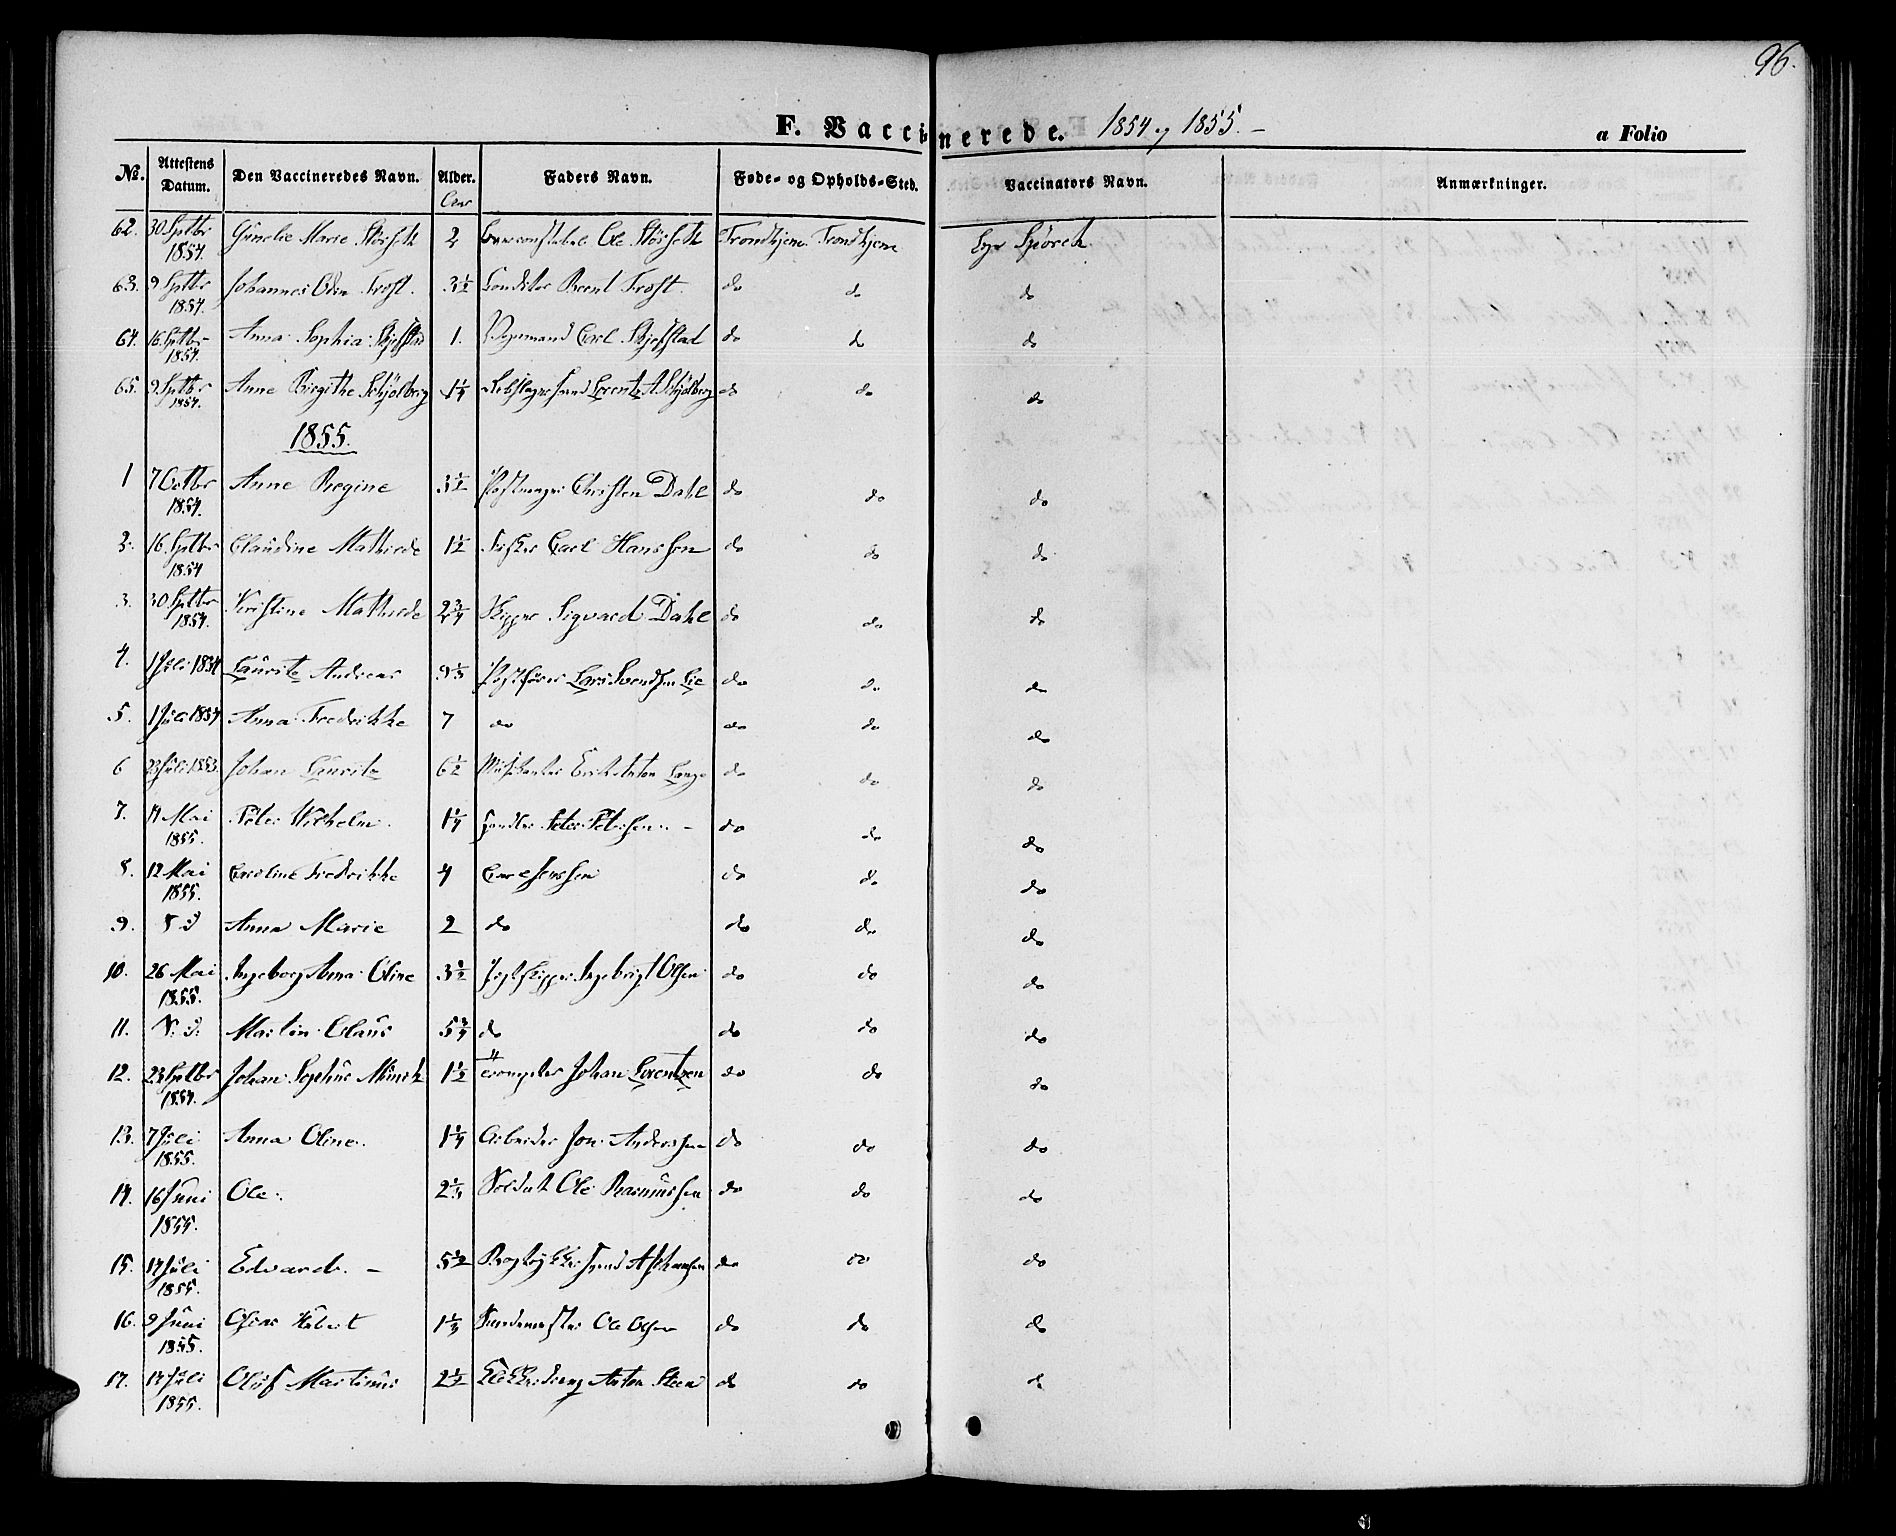 96.
F. Vaccinerede. 1854 og 1855. –
a Folio
No. Attestens Datum. Den Vaccineredes Navn. Alder. Aar Faders Navn. Føde- og Opholds-Sted. Vaccinators Navn. Anmærkninger.
62. 30 Sptbr 1854. Marie Störseth 2 Ole Störseth Trondhjem Trondhjem
63. 9 Sptbr 1854. Johannes Odin Trost. 3½ Conditor Bernt Trost. do do do
64. 16 Sptbr 1854. Anna Sophia Skjefstad 1. Vognmand Carl Skjefstad do do do
65. 9 Sptbr 1854. Anne Birgithe Schjølberg 1¼ Lorentz A. Schjølberg do do do
1855.
1 7 Octbr 1854. Anne Regine 3½ Christen Dahl do do do
2. 16. Sptbr 1854 Claudine Mathilde 1½ Fisker Carl Hanssen do do do
3. 30 Sptbr 1854. Kristine Mathilde 2¾ Skipper Sigvard Dahl do do do
4. 1 Juli 1854 Lauritz Andreas 9 Postfører Lars Svendsen Lie do do do
5. 1 Juli 1854 Anna Fredrikke 7 do do do do
6 23 Juli 1853. Johan Lauritz 6½ Erik Anton Lange do do do
7. Mai 1855. Peter Wilhelm. 1¼ Handler Peter Petersen. – do do do
8. 12 Mai 1855. Caroline Fredrikke 4 do do do
9. S D Anna Marie 2 do do do do
10. 26 Mai 1855. Ingeborg Anna Oline 3½ Ingebrigt Olsen do do do
11. S. D. Martin Olaus 5¾ do do do do
12. 23 Sptbr 1854. Johan Sophus Münch 1½ Johan Lorentzen do do do
13. 7 Juli 1855. Anna Oline. 1¼ Arbeider Jon Anderssen do do do
14. 16 Juni 1855. Ole. 2¼ Soldat Ole Rasmussen do do do
15. 14 Juli 1855. Edvard. – 5½ do do do
16. 9 Juni 1855. 1 Ole Olsen do do do
17. Juli 1855. Oluf Martinus 2½ Anton Steen do do do